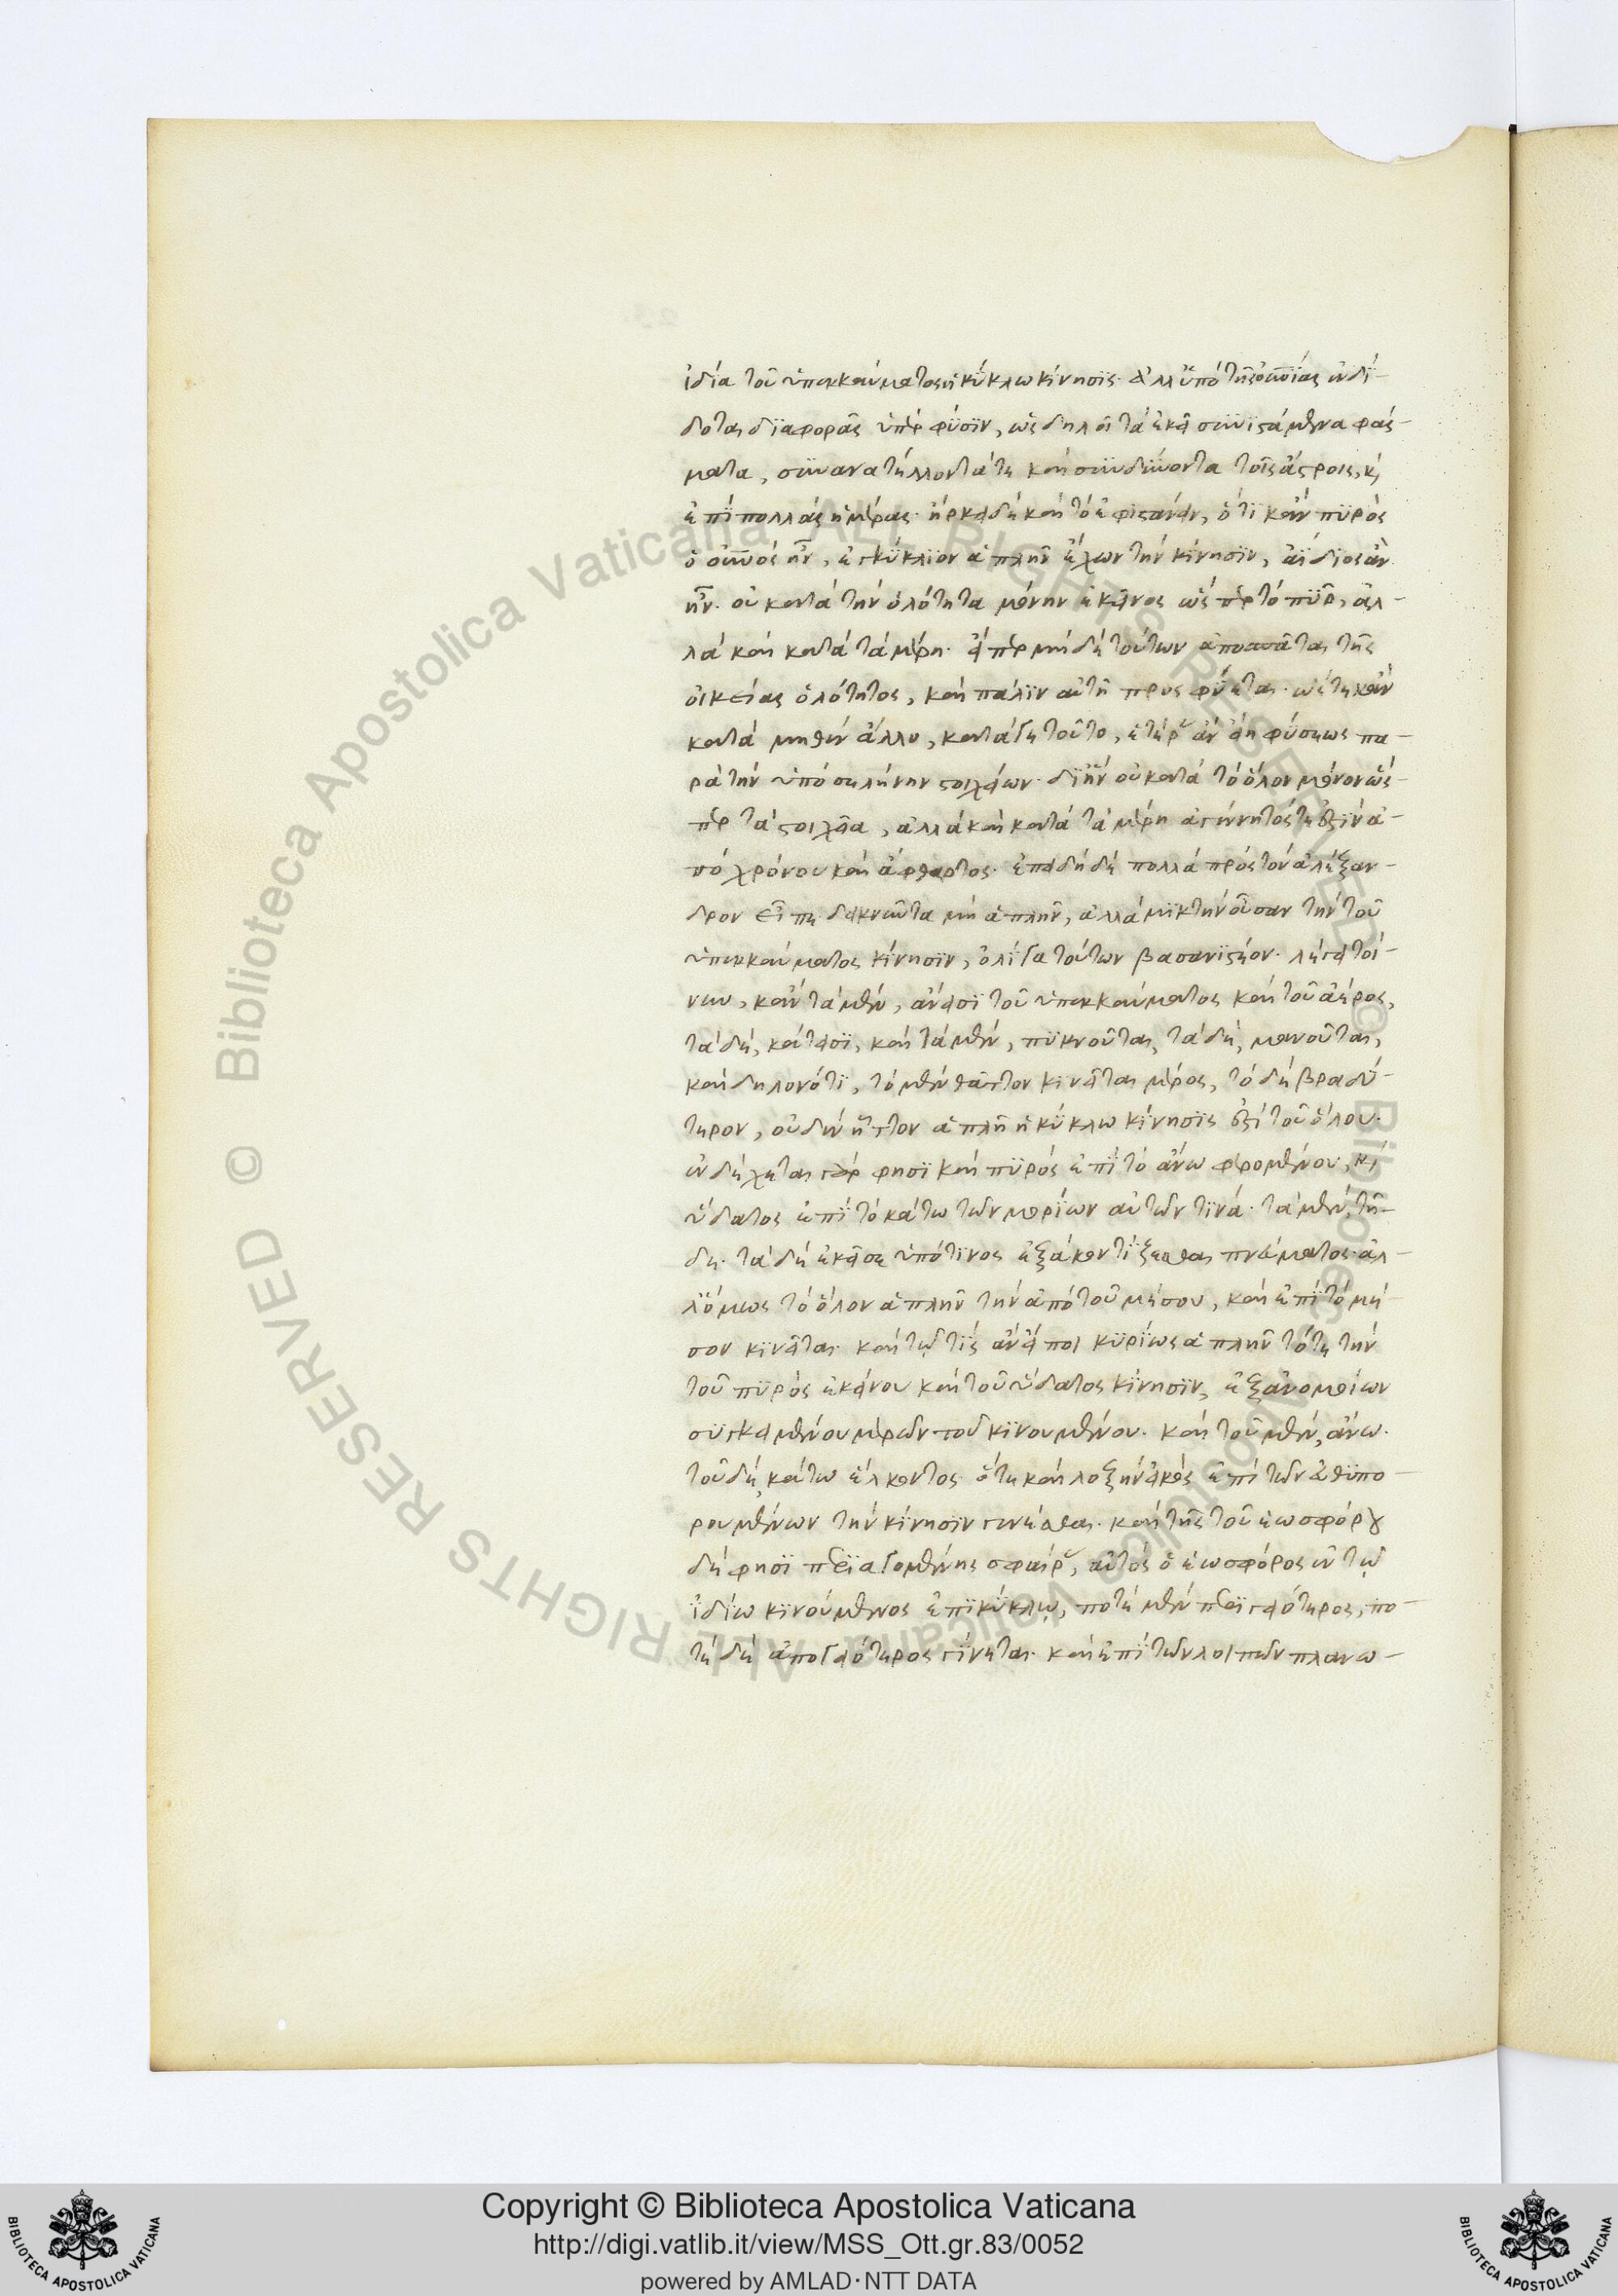 ἰδία τοῦ ὑπεκκαύματος ἡ κύκλω κίνησϊς· ἀλλ ὑπὸ τῆς οὐνίας ἐνδί-
δοται διαφορᾶς ὑπὲρ φύσϊν, ὡς δηλοῖ τὰ ἐκεῖ συνϊστάμενα φάσ-
ματα, συνανατέλλοντά τε καὶ συνδύνοντα τοῖς ἄστροις, κ
ἐπὶ πολλὰς ἡμέρας· ἤρκει δὲ καὶ τὸ ἐφϊστάνειν, ὅτϊ κἂν πυρὸς
ὁ οὐνὸς ἦν, ἐγκύκλϊον ἁπλῆν ἔχων τὴν κίνησϊν, ἀΐδϊος ἂν
ἦν· οὐ κατὰ τὴν ὁλότητα μόνην ἐκεῖνος ὥσπερ τὸ πῦρ, ἀλ-
λὰ καὶ κατὰ τὰ μέρη· εἴπερ μηδὲ τούτων ἀποσπᾶται τῆς
οἰκείας ὁλότητος, καὶ πάλϊν αὐτῆ προσφύεται· ὥστε κἂν
κατὰ μηθὲν ἄλλο, κατά γε τοῦτο, ἑτέρας ἂν εἴη φύσεως πα-
ρὰ τὴν ὑπὸ σελήνην στοιχείων· δϊ ἣν οὐ κατὰ τὸ ὅλον μόνον ὥσ-
περ τὰ στοιχεῖα, ἀλλὰ καὶ κατὰ τὰ μέρη ἀγέννητός τε ἐστὶν ἀ-
πὸ χρόνου καὶ ἄφθαρτος· ἐπειδὴ δὲ πολλὰ πρὸς τὸν ἀλέξαν-
δρον εἶπε δεικνῦντα μὴ ἁπλῆν, ἀλλὰ μϊκτὴν οὖσαν τὴν τοῦ
ὑπεκκαύματος κίνησϊν, ὀλίγα τούτων βασανϊστέον· λέγει τοί-
νυν, κἂν τὰ μὲν, ἄνεισϊ τοῦ ὑπεκκαύματος καὶ τοῦ ἀέρος,
τὰ δὲ, κάτεισϊ, καὶ τὰ μὲν, πυκνοῦται, τὰ δὲ, μανοῦται,
καὶ δηλονότϊ, τὸ μὲν θᾶττον κινεῖται μέρος, τὸ δὲ βραδύ-
τερον, οὐδὲν ἧττον ἁπλῆ ἡ κύκλω κίνησϊς ἐστὶ τοῦ ὅλου·
ἐνδέχεται γάρ φησϊ καὶ πυρὸς ἐπὶ τὸ ἄνω φερομένου, κ
ὕδατος ἐπὶ τὸ κάτω τῶν μορίων αὐτῶν τϊνὰ· τὰ μὲν, τῆ-
δε· τὰ δὲ ἐκεῖσε ὑπό τϊνος ἐξακοντίζεσθαι πνεύματος· ἀλ-
λ ὅμως τὸ ὅλον ἁπλῆν τὴν ἀπὸ τοῦ μέσου, καὶ ἐπὶ τὸ μέ-
σον κϊνεῖται· καὶ τῷ τὶς ἂν εἴποι κυρίως ἁπλῆν τότε τὴν
τοῦ πυρὸς ἐκείνου καὶ τοῦ ὕδατος κίνησϊν, ἐξ ἀνομοίων
συγκειμένου μερῶν τοῦ κϊνουμένου· καὶ τοῦ μὲν, ἄνω·
τοῦ δὲ, κάτω ἕλκοντος· ὅτε καὶ λοξὴν εἰκὸς ἐπὶ τῶν εὐθυπο-
ρουμένων τὴν κίνησϊν γινέσθαι· καὶ τῆς τοῦ ἑωσφόρου
δέ φησϊ περϊαγομένης σφαίρας, αὐτὸς ὁ ἑωσφόρος ἐν τῷ
ϊδίω κϊνούμενος ἐπϊκύκλῳ, ποτὲ μὲν περϊγειότερος, πο-
τὲ δὲ ἀπογειότερος γίνεται· καὶ ἐπὶ τῶν λοιπῶν πλανω-
Copyright © Biblioteca Apostolica Vaticana
http://digi.vatlib.it/view/MSS_Ott.gr.83/0052
powered by AMLAD·NTT DATA